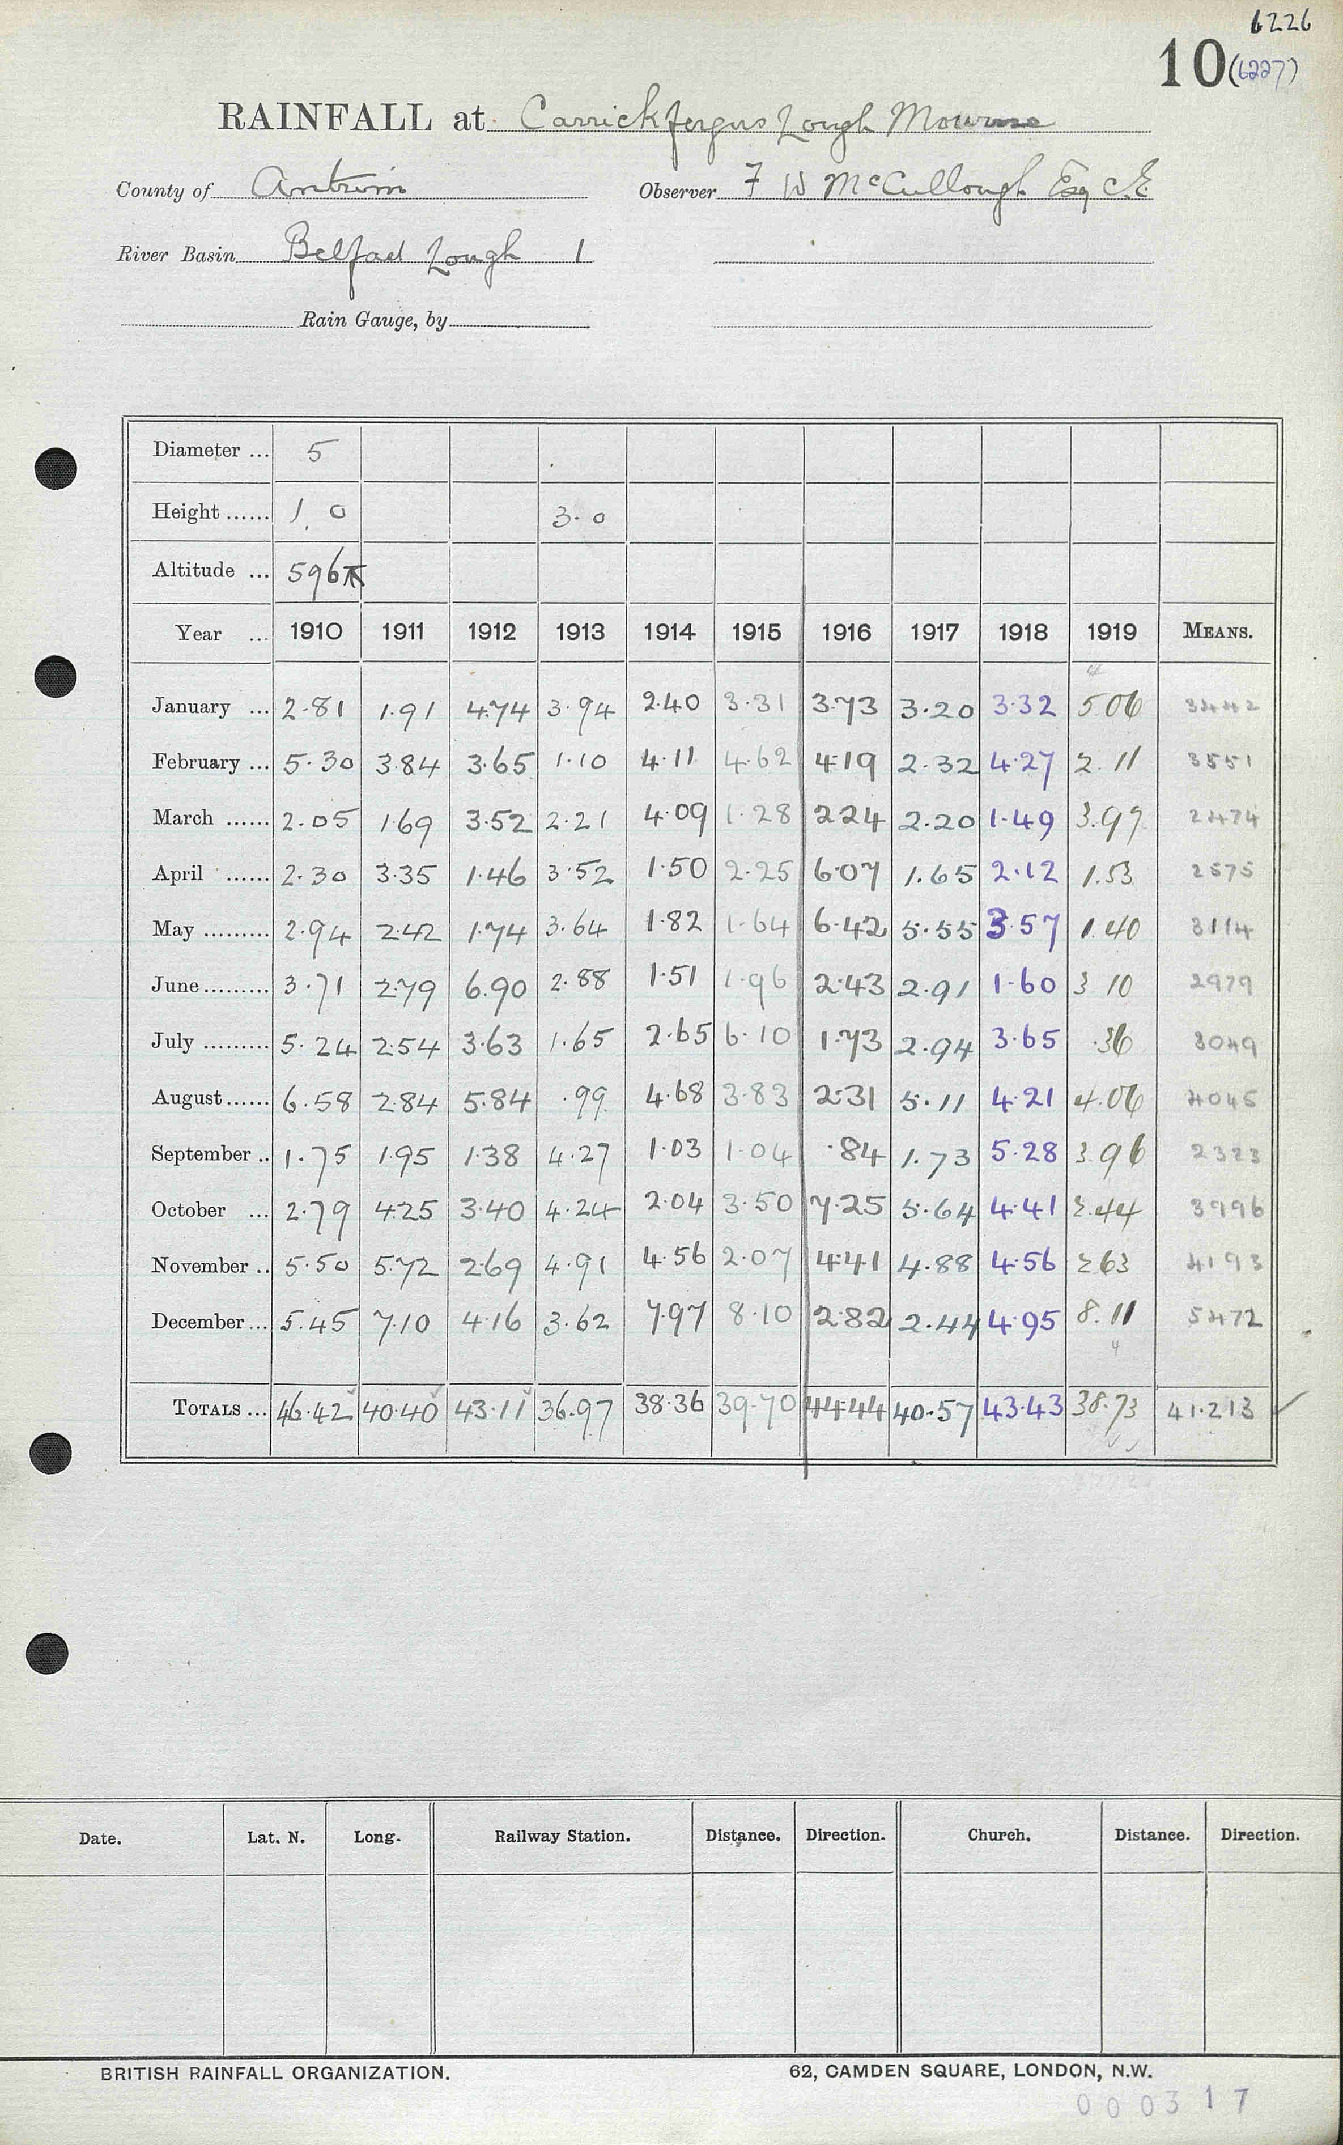 6226
10 (6227)
RAINFALL at Carrickfergus Lough Mourne
County of Antrim Observer F W McCullough Esq C.E.
River Basin Belfast Lough 1
Rain Gauge, by
Diameter ... 5
Height ...... 1. 0 3. 0
Altitude ... 596
Year ... 1910 1911 1912 1913 1914 1915 1916 1917 1918 1919 MEANS.
January ... 2.81 1.91 4.74 3.94 2.40 3.31 3.73 3.20 3.32 5.06 3442
February ... 5.30 3.84 3.65 1.10 4.11 4.62 4.19 2.32 4.27 2.11 3551
March ...... 2.05 1.69 3.52 2.21 4.09 1.28 2.24 2.20 1.49 3.97 2474
April ...... 2.30 3.35 1.46 3.52 1.50 2.25 6.07 1.65 2.12 1.53 2575
May ......... 2.94 2.42 1.74 3.64 1.82 1.64 6.42 5.55 3.57 1.40 3114
June ......... 3.71 2.79 6.90 2.88 1.51 1.96 2.43 2.91 1.60 3 10 2979
July ......... 5.24 2.54 3.63 1.65 2.65 6.10 1.73 2.94 3.65 .36 3049
August ...... 6.58 2.84 5.84 .99 4.68 3.83 2.31 5.11 4.21 4.06 4045
September .. 1.75 1.95 1.38 4.27 1.03 1.04 .84 1.73 5.28 3.96 2323
October ... 2.79 4.25 3.40 4.24 2.04 3.50 7.25 5.64 4.41 2.44 3996
November .. 5.50 5.72 2.69 4.91 4.56 2.07 4.41 4.88 4.56 2.63 4193
December ... 5.45 7.10 4.16 3.62 7.97 8.10 2.82 2.44 4.95 8.11 5472
TOTALS ... 46.42 40.40 43.11 36.97 38.36 39.70 44.44 40.57 43.43 38.73 41.213
Date. Lat. N. Long. Railway Station. Distance. Direction. Church. Distance. Direction.
BRITISH RAINFALL ORGANIZATION. 62, CAMDEN SQUARE, LONDON, N.W.
000317